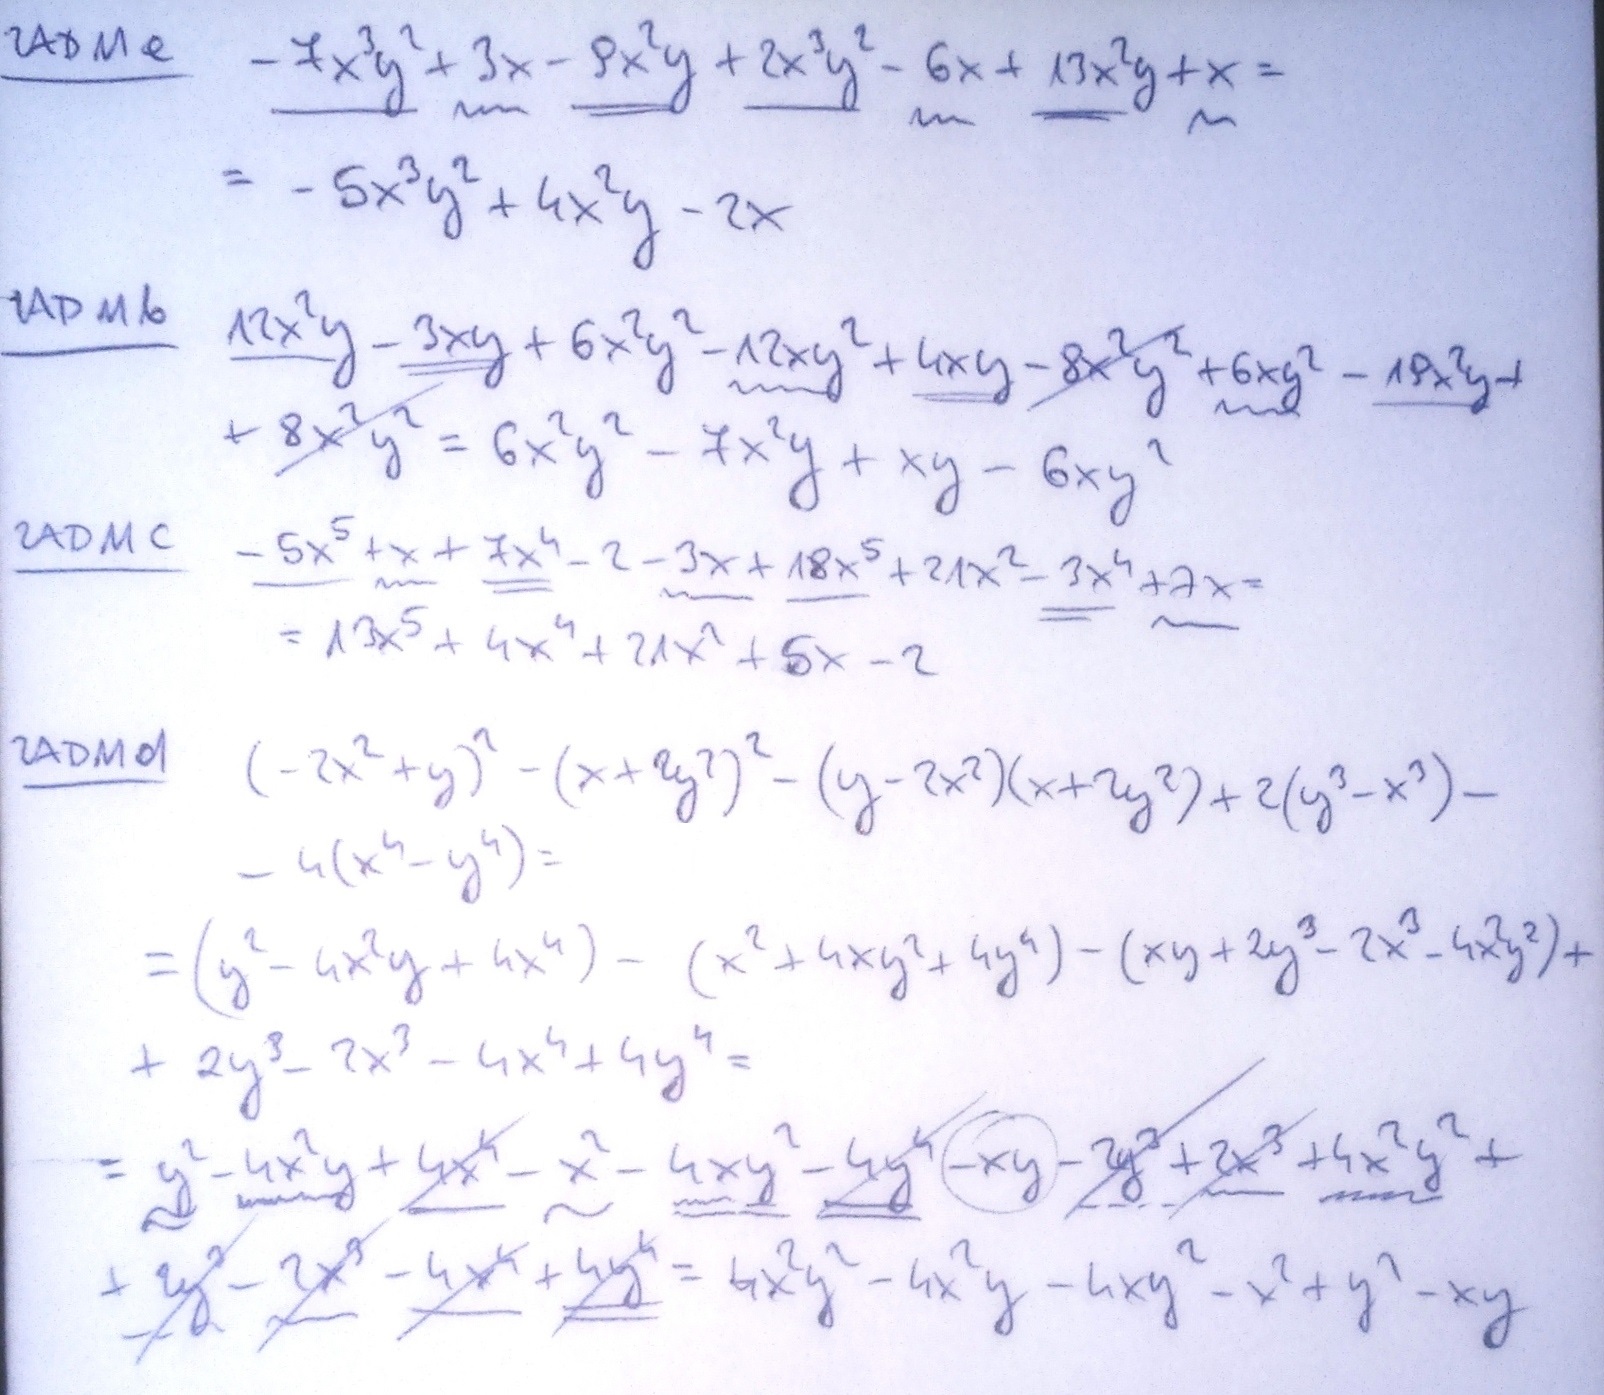 ZADM a -7x³y² + 3x - 9x²y + 2x³y² - 6x + 13x²y + x =
= -5x³y² + 4x²y - 2x
ZADM b 12x²y - 3xy + 6x²y² - 12xy² + 4xy - 8x²y² + 6xy² - 19x²y +
+ 8x²y² = 6x²y² - 7x²y + xy - 6xy²
ZADM c -5x⁵ + x + 7x⁴ - 2 - 3x + 18x⁵ + 21x² - 3x⁴ + 7x =
= 13x⁵ + 4x⁴ + 21x² + 5x - 2
ZADM d (-2x² + y)² - (x + 2y²)² - (y - 2x²)(x + 2y²) + 2(y³ - x³) -
- 4(x⁴ - y⁴) =
= (y² - 4x²y + 4x⁴) - (x² + 4xy² + 4y⁴) - (xy + 2y³ - 2x³ - 4x²y²) +
+ 2y³ - 2x³ - 4x⁴ + 4y⁴ =
= y² - 4x²y + 4x⁴ - x² - 4xy² - 4y⁴ - xy - 2y³ + 2x³ + 4x²y² +
+ 2y³ - 2x³ - 4x⁴ + 4y⁴ = 4x²y² - 4x²y - 4xy² - x² + y² - xy